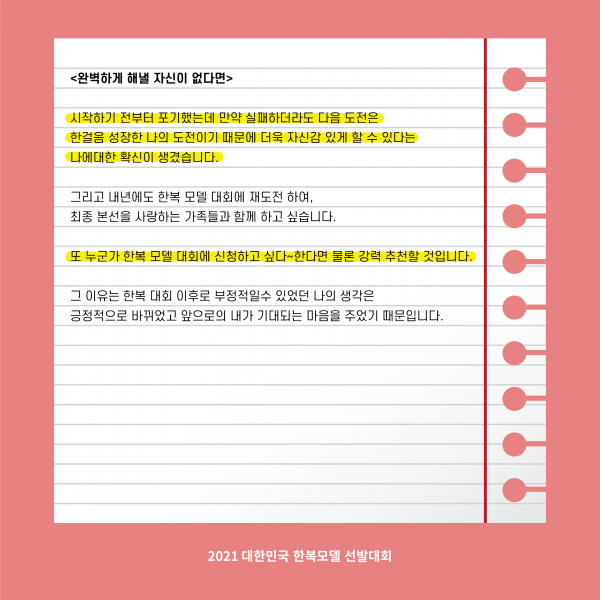 <완벽하게 해낼 자신이 없다면>
시작하기 전부터 포기했는데 만약 실패하더라도 다음 도전은
한걸음 성장한 나의 도전이기 때문에 더욱 자신감 있게 할 수 있다는
나에대한 확신이 생겼습니다.
그리고 내년에도 한복 모델 대회에 재도전 하여,
최종 본선을 사랑하는 가족들과 함께 하고 싶습니다.
또 누군가 한복 모델 대회에 신청하고 싶다~한다면 물론 강력 추천할 것입니다.
그 이유는 한복 대회 이후로 부정적일수 있었던 나의 생각은
긍정적으로 바뀌었고 앞으로의 내가 기대되는 마음을 주었기 때문입니다.
2021 대한민국 한복모델 선발대회